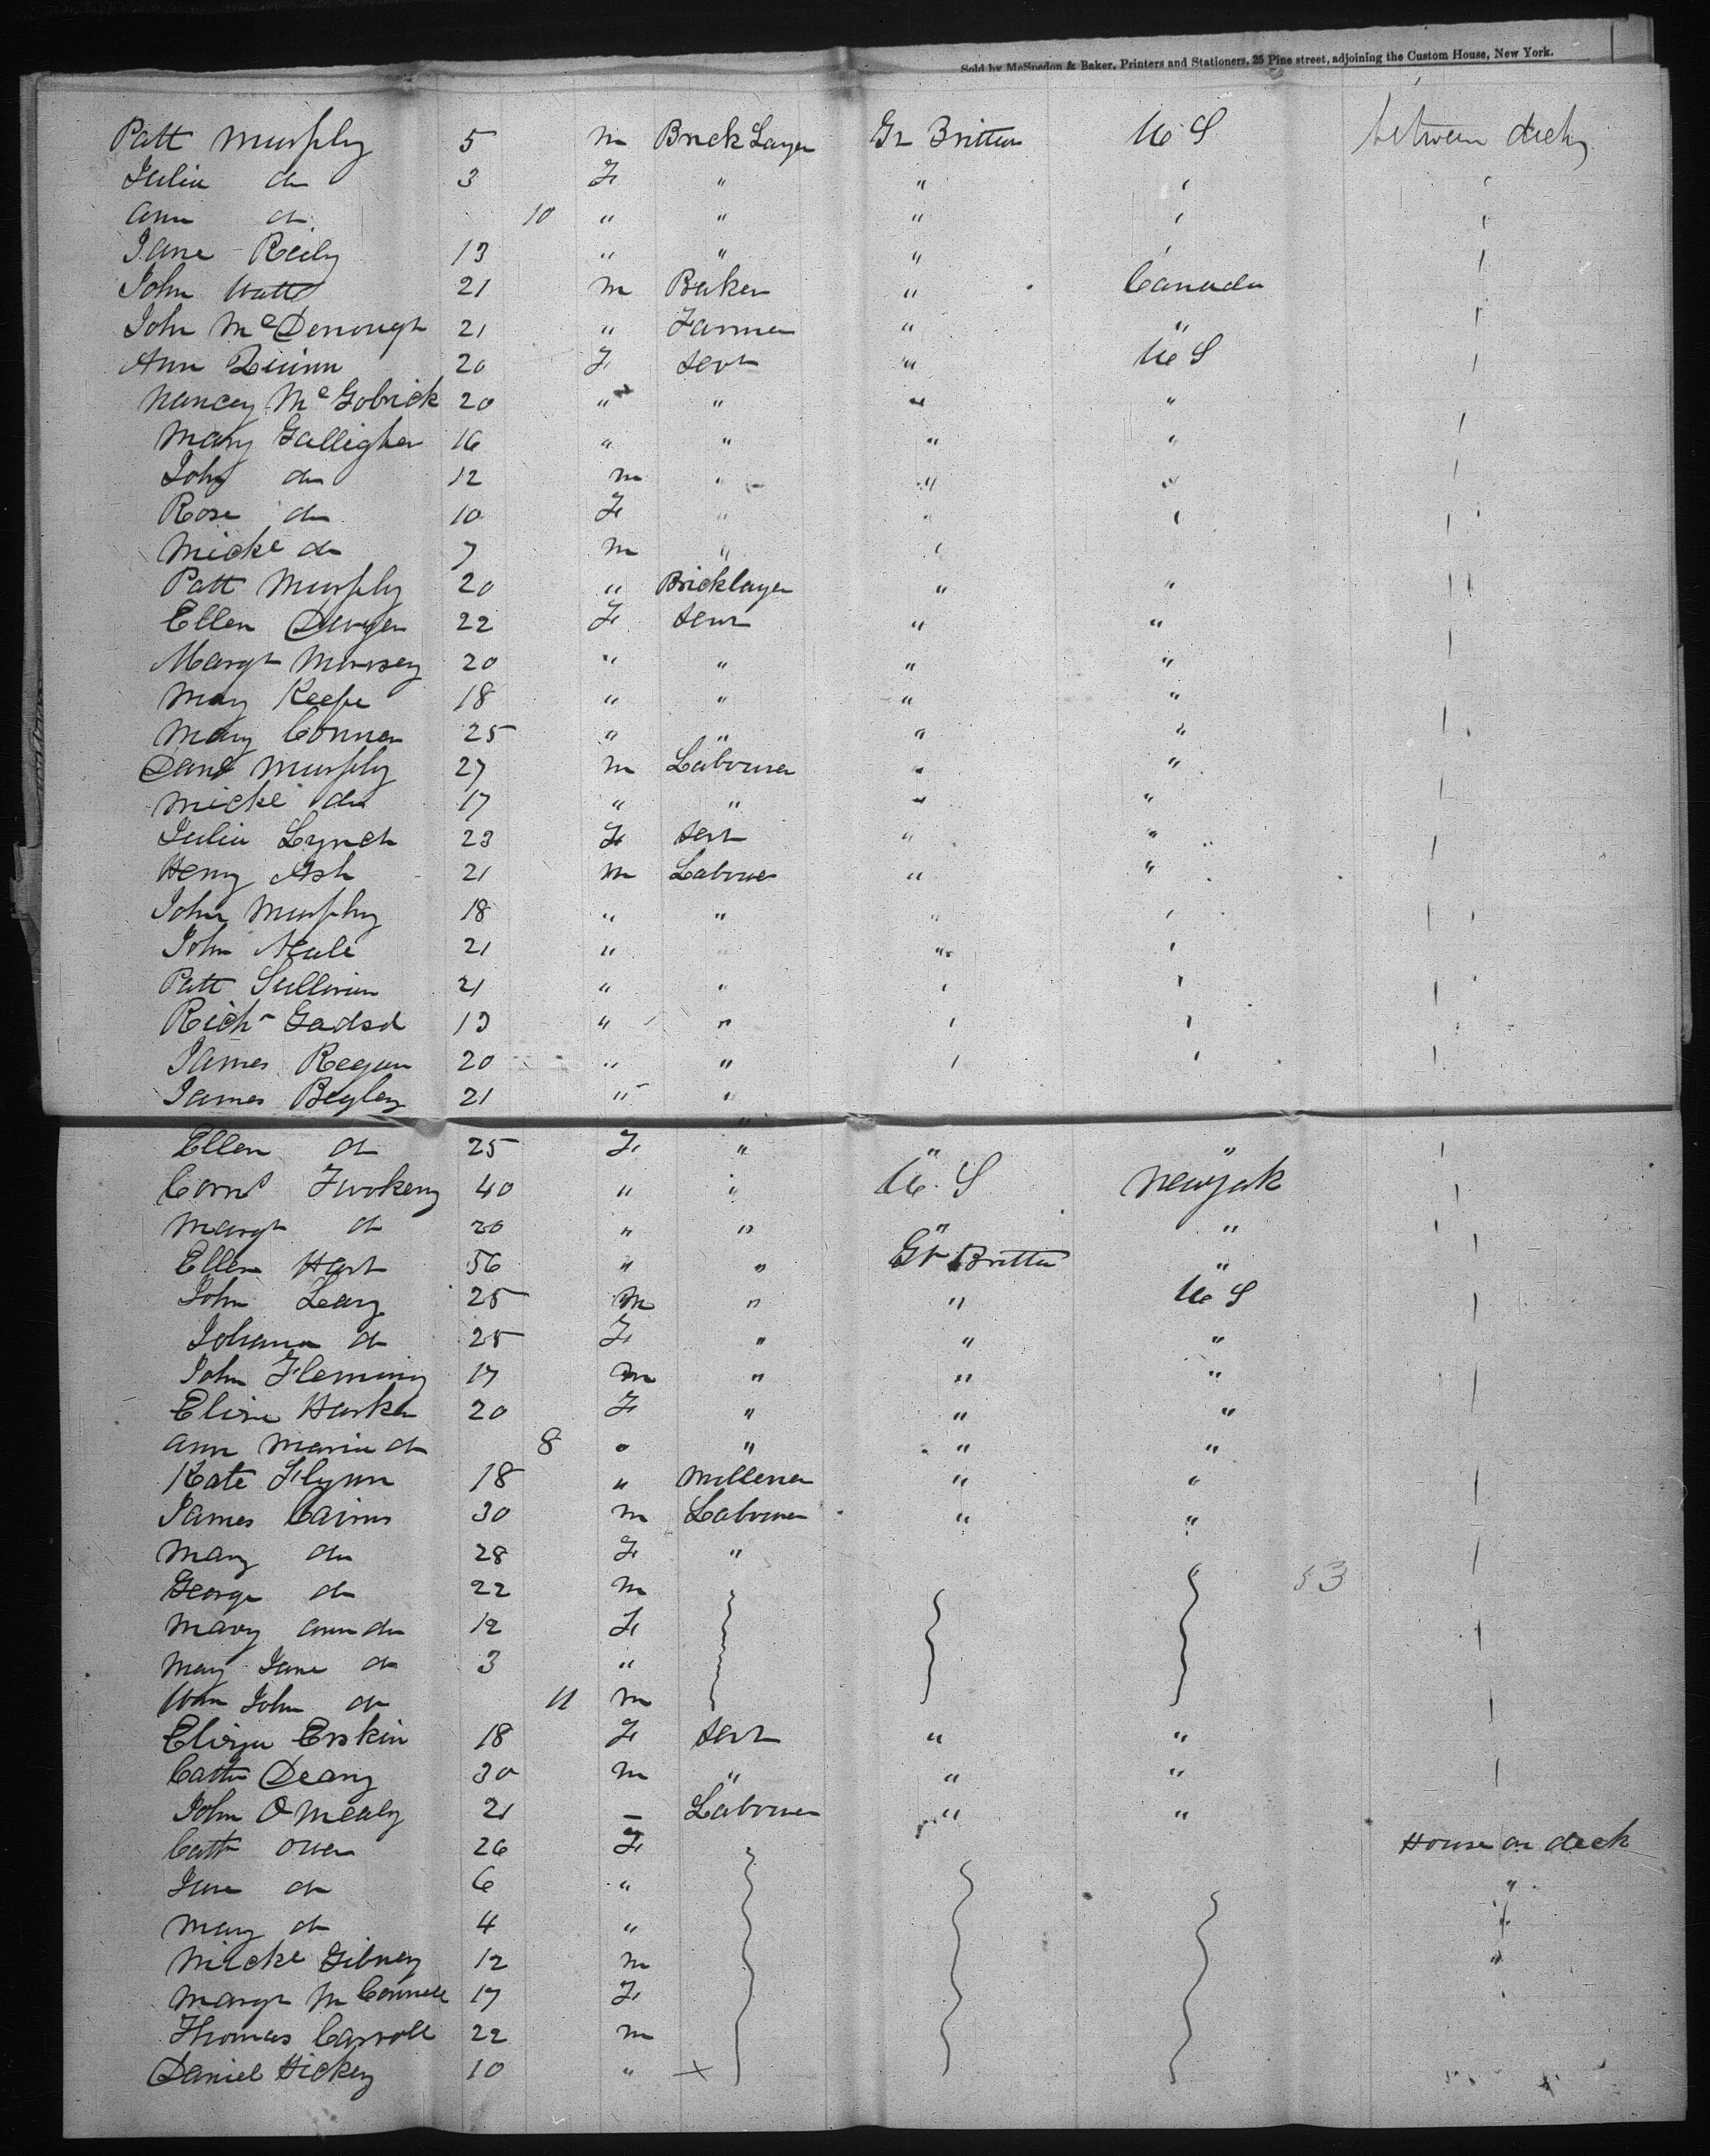 Sold by McSpedon & Baker, Printers and Stationers, 25 Pine street, adjoining the Custom House, New York.
Patt Murphy 5 m Brick Layer Gr Britten U S between decks
Julia do 3 F " " " "
Ann do 10 " " " " "
Jane Reily 13 " " " " "
John Watt 21 m Baker " Canada "
John McDonough 21 " Farmer " " "
Ann Quinn 20 F Servt " U S "
Nancy McGobrick 20 " " " "
Mary Galligher 16 " " " " "
John do 12 m " " " "
Rose do 10 F " " " "
Micke do 7 m " "
Patt Murphy 20 " Bricklayer " " "
Ellen 22 F Servt " "
Margt 20 " " " " "
Mary Keefe 18 " " " "
Mary Conner 25 " " " " "
Danl Murphy 27 m Labourer " "
Micke do 17 " " " " "
Julia Lynch 23 F Servt " " "
Henry Ash 21 m Labourer " "
John Murphy 18 " " " " "
John Neale 21 " " " "
Patt Sullivan 21 " " " " "
Richd 13 " " " "
James Regan 20 " " " " "
James Begley 21 " "
Ellen do 25 F " " " "
Cornl 40 " " U. S New york "
Margt do 20 " " " " "
Ellen Hart 56 " " Gr Britten " "
John Leary 25 m " " U S "
Johana do 25 F " " "
John Fleming 17 m " " " "
Eliza Harken 20 F " " "
Ann Maria do 8 " " " "
Kate Flynn 18 " Millener " " "
James Cairns 30 m Labourer " "
Mary do 28 F " "
George do 22 m 53
Mary Ann do 12 F "
Mary Jane do 3 "
Wm John do 11 m "
Eliza Erskin 18 F Servt " "
Cathe Deary 30 m " " " "
John O Mealy 21 – Labourer " "
Cath Owen 26 F House on deck
Jane do 6 " "
Mary do 4 " "
Micke Gibney 12 m "
Margt McConnell 17 F
Thomas Carroll 22 m
Daniel Hickey 10 " x